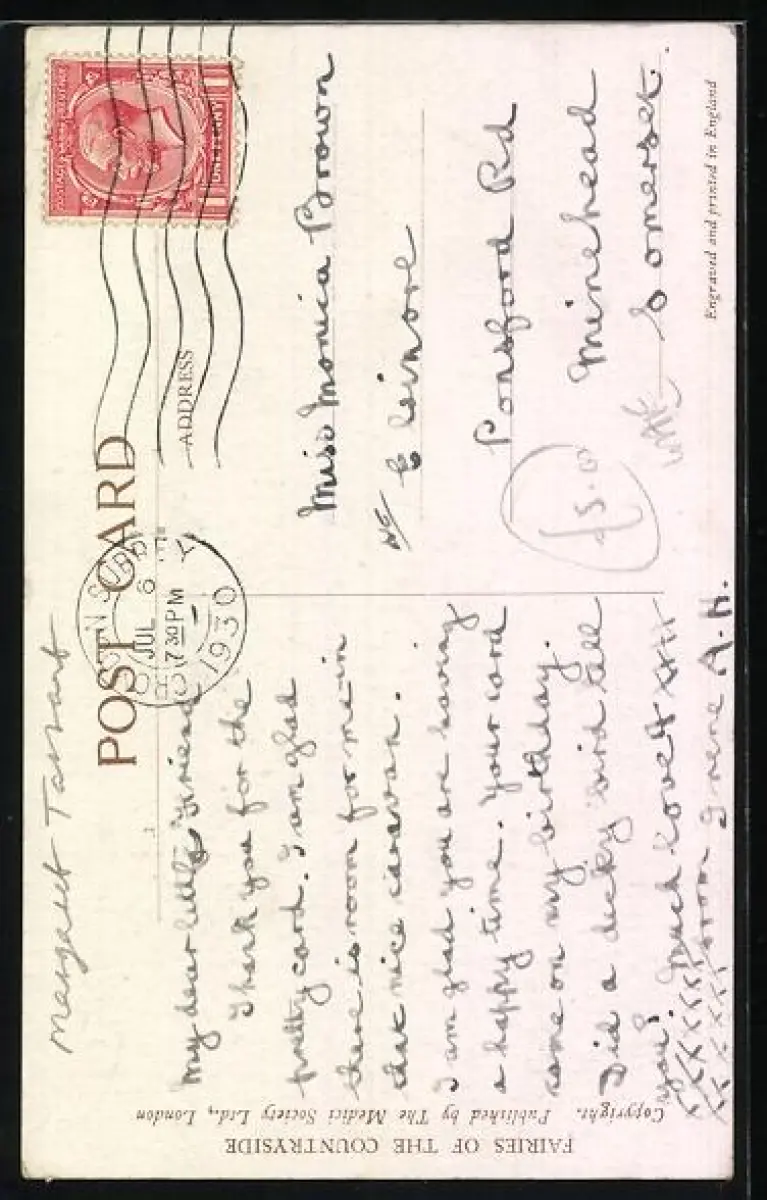 Margaret Tarrant
POST CARD
ADDRESS
POSTAGE
ONE PENNY
JUL 6
7 30 PM
1930
My dear little Friend
Thank you for the
pretty card. I am glad
there is room for me in
that nice caravan.
I am glad you are having
a happy time. Your card
came on my birthday.
Did a dicky bird tell
you? Much love &
from Irene A.H.
x x x x x x
x x x x x x
Miss Monica Brown
Ponsford Rd
Minehead
Somerset.
£5.00
FAIRIES OF THE COUNTRYSIDE
Copyright. Published by The Medici Society Ltd., London
Engraved and printed in England